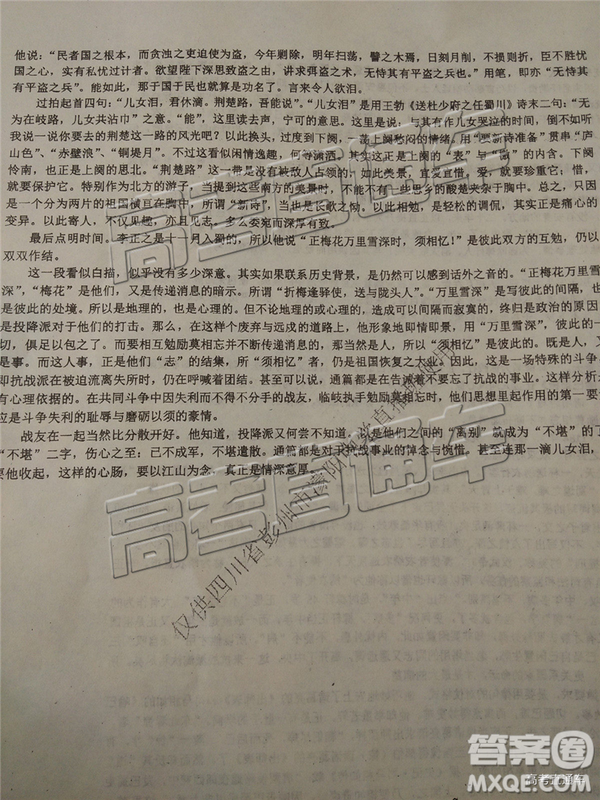 他说：“民者国之根本，而贪浊之吏迫使为盗，今年剿除，明年扫荡，譬之木焉，日刻月削，不损则折，臣不胜忧
国之心，实有私忧过计者。欲望陛下深思致盗之由，讲求弭盗之术，无恃其有平盗之兵也。”用笔，即亦“无恃其
有平盗之兵”。能如此，那于国于民也就算是功名了。言来令人欲泪。
过拍起首四句：“儿女泪，君休滴。荆楚路，吾能说”。“儿女泪”是用王勃《送杜少府之任蜀川》诗末二句：“无
为在岐路，儿女共沾巾”之意。“能”，这里读去声，宁可的意思。这里是说，与其有作儿女哭泣的时间，倒不如听
我说一说你要去的荆楚这一路的风光吧？以此换头，过到下阕，一荡上阕愁闷的情绪，用“要新诗准备”贯串“庐
山色”、“赤壁浪”、“铜堤月”。不过这看似闲情逸趣，
怜南，也正是上阕的思北。“荆楚路”这一带是没有被敌人占领的，如此美景，直应爱惜，珍重它；惜，
就要保护它。特别作为北方的游子，当提到这些南方的美景时，不能不有一些思乡的酸楚夹杂于胸中。总之，只因
是一个分为两片的祖国横亘在胸中，所谓“新诗”，当也是长歌之哭。以此相勉，是轻松的调侃，其实正是痛心的
变异。以此寄人，不仅见趣，亦且见志。多么委宛而深厚有致。
最后点明时间。李正之是十一月入蜀的，所以他说“正梅花万里雪深时，须相忆！”是彼此双方的互勉，仍以
双双作结。
这一段看似白描，似乎没有多少深意。其实如果联系历史背景，是仍然可以感到他话外之音的。“正梅花万里雪
深”，“梅花”是他们，又是传递消息的暗示。所谓“折梅逢驿使，送与陇头人”。“万里雪深”是写彼此的间隔，
是彼此的处境。所以是地理的，也是心理的。但不论地理的或心理的，造成可以间隔而寂寞的，终归是政治的原因
是投降派对于他们的打击。那么，在这个样废弃与远戍的道路上，他形象地即情即景，用“万里雪深”，以概括这
切，俱足以包之。而要相互勉励莫相忘并不断传递消息的当然是要“须相忆”的彼此。既是人，又
是事。而这人事，正是他们“志”的结集，所“须相忆”者，仍是祖国恢复之大业。因之，这是一场特殊的斗争
即抗战派在被迫流离失所时，仍在呼喊着团结。甚至可以说，通篇都是在告诫不要忘了抗战的事业，这样分析是
有心理依据的。在共同斗争中因失利而不得不分手的战友，临岐执手勉励莫相忘，他们思想里一起作用的第一
应是斗争失利的耻辱与磨砺以须的豪情。
战友在一起当然比分散开好。他知道，投降派又何尝不知道，以是他们之间的“离别”就成为“不堪”的了
“不堪”二字，伤心之至；已不成军，不堪遣散。通篇都是对于抗战事业的悼念与惋惜。甚至连那一滴儿女泪，
要他收起，这样的心肠，要以江山为念，真正是情深意厚。
高考直通车
仅供四川省彭州市
答案卷
MXQE.COM
高考直通车